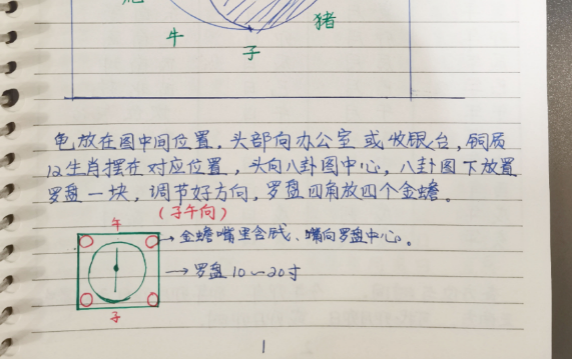 牛
子
猪
龟放在图中间位置，头部向办公室或收银台，铜质
12生肖摆在对应位置，头向八卦图中心，八卦图下放置
罗盘一块，调节好方向，罗盘四角放四个金蟾。
(子午向)
午
→金蟾嘴里含钱、嘴向罗盘中心。
→罗盘10~20寸
子
1